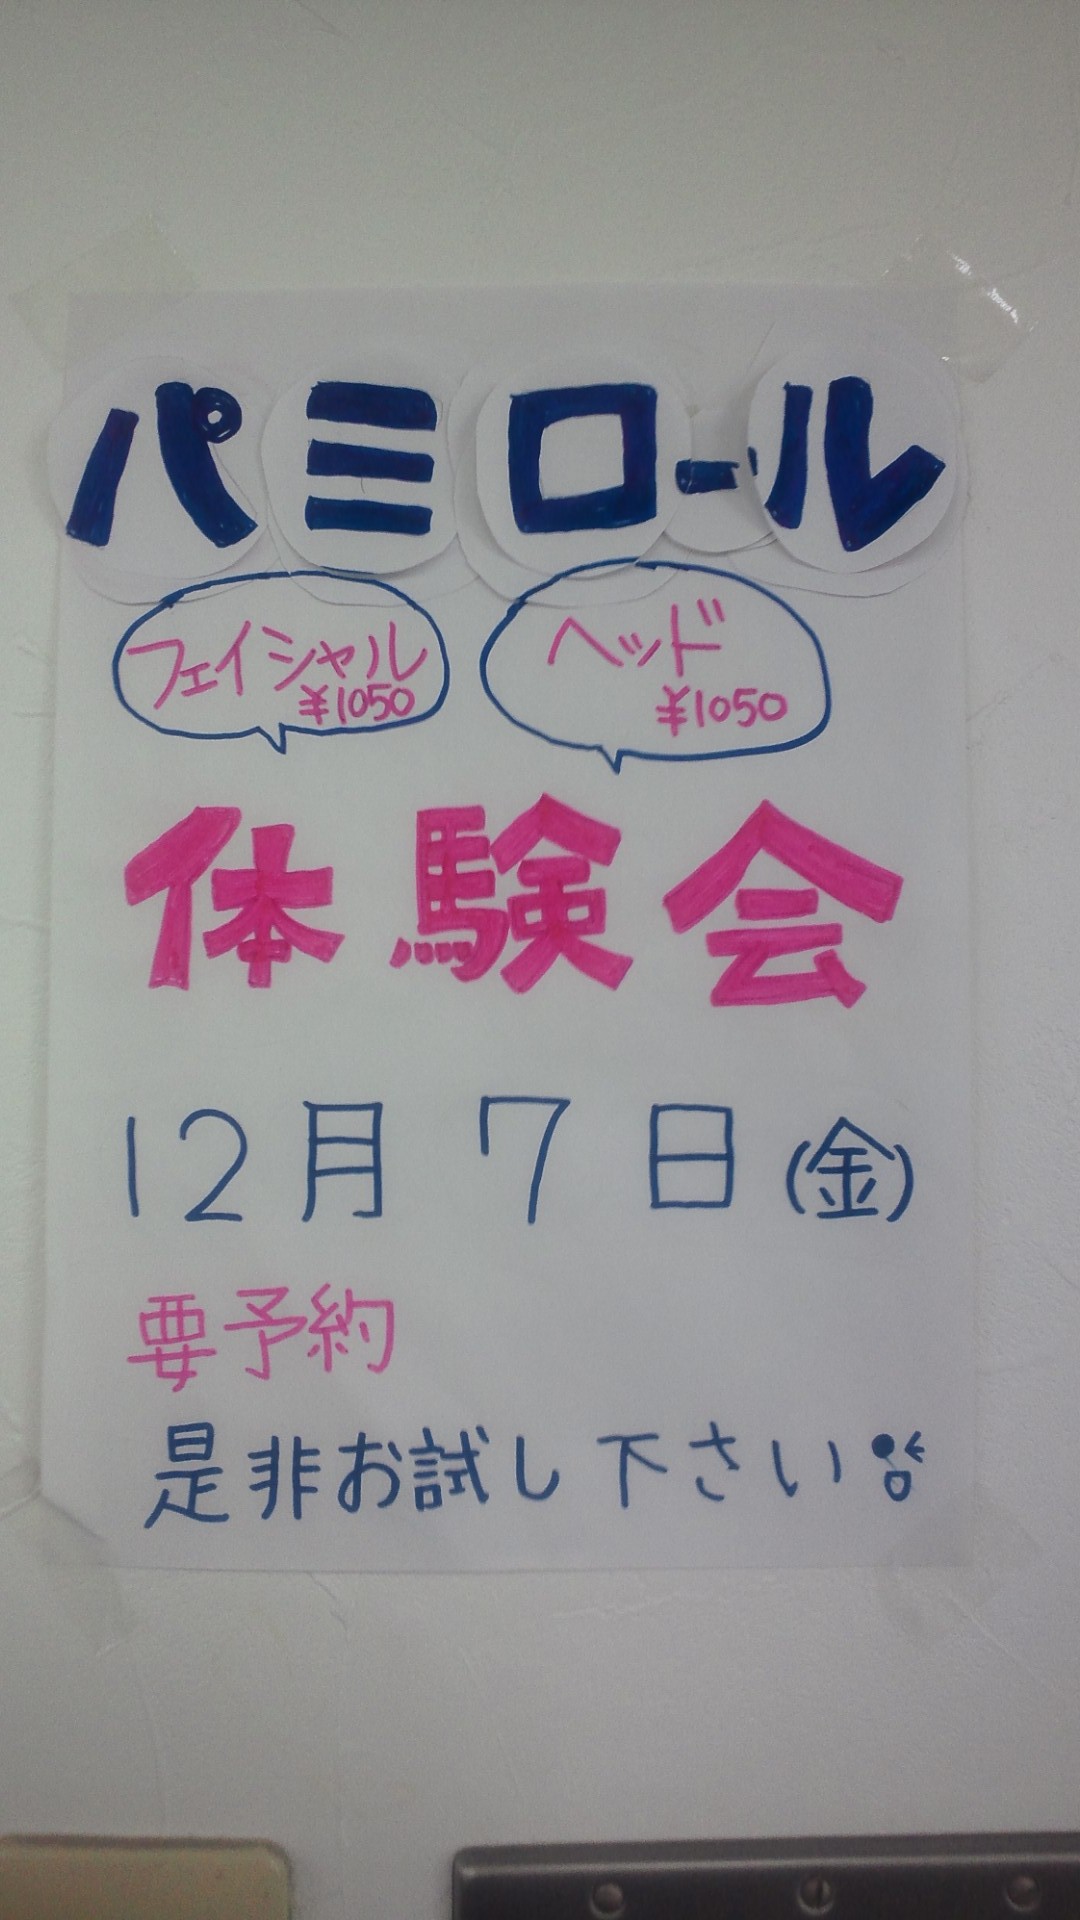 パミロール
フェイシャル
¥1050
ヘッド
¥1050
体験会
12月7日(金)
要予約
是非お試し下さい